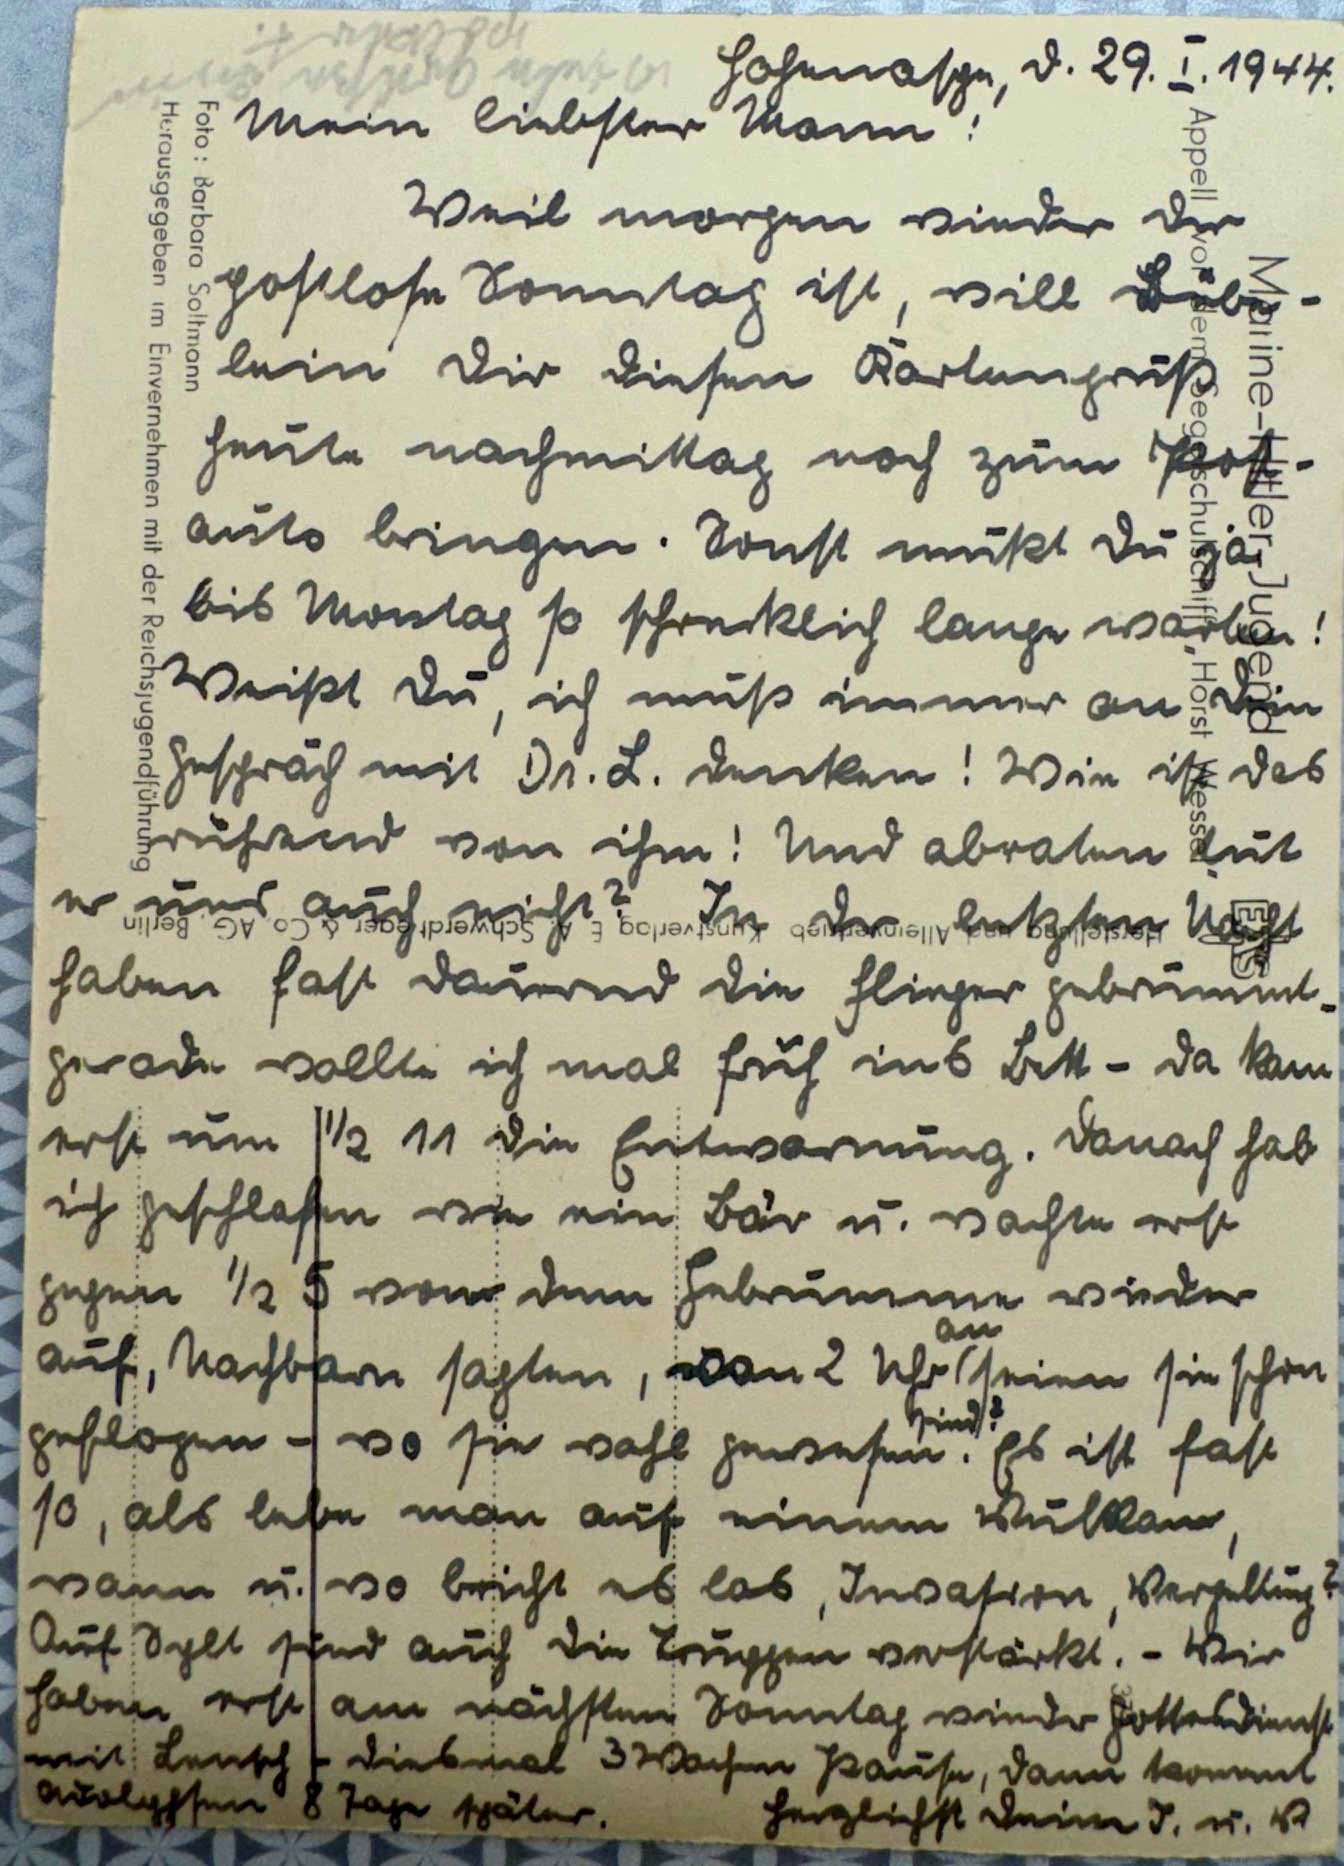 Hohenaspe, d. 29. I. 1944.
Mein liebster Mann!
Weil morgen wieder der
postlose Sonntag ist, will Bübe-
lein Dir diesen Kartengruß
heute nachmittag noch zum Post-
auto bringen. Sonst müßt Du ja
bis Montag so schrecklich lange warten!
Weißt Du, ich muß immer an Dein
Gespräch mit Dr. L. denken! Wie ist das
rührend von ihm! Und abraten tut
er uns auch nicht? In der letzten Nacht
haben fast dauernd die Flieger gebrummt.
gerade wollte ich mal früh ins Bett - da kam
erst um 1/2 11 die Entwarnung. Danach hab
ich geschlafen wie ein Bär u. wachte erst
gegen 1/2 5 von dem Gebrumme wieder
auf, Nachbarn sagten, von 2 Uhr an seien sie schon
geflogen - wo sie wohl gewesen sind? Es ist fast
so, als lebe man auf einem Vulkan,
wann u. wo bricht es los, Invasion, Vergeltung?
Auf Sylt sind auch die Truppen verstärkt. - Wir
haben erst am nächsten Sonntag wieder Gottesdienst
mit - diesmal 3 Wochen Pause, dann kommt
8 Tage später. Herzlichst Deine I. u. V
Marine-Hitler-Jugend
Appell vor dem Segelschulschiff "Horst Wessel"
Foto: Barbara Soltmann
Herausgegeben im Einvernehmen mit der Reichsjugendführung
Herstellung und Alleinvertrieb Kunstverlag E. A. Schwerdtfeger & Co. AG, Berlin
EAS